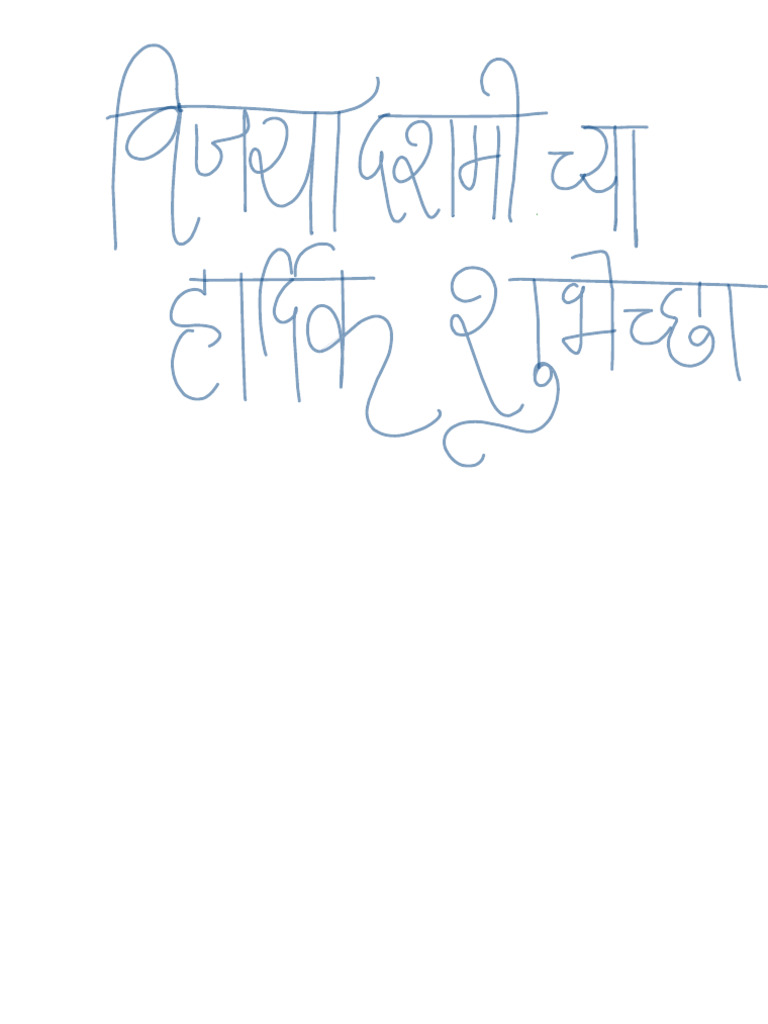 विजयादशमीच्या
हार्दिक शुभेच्छा